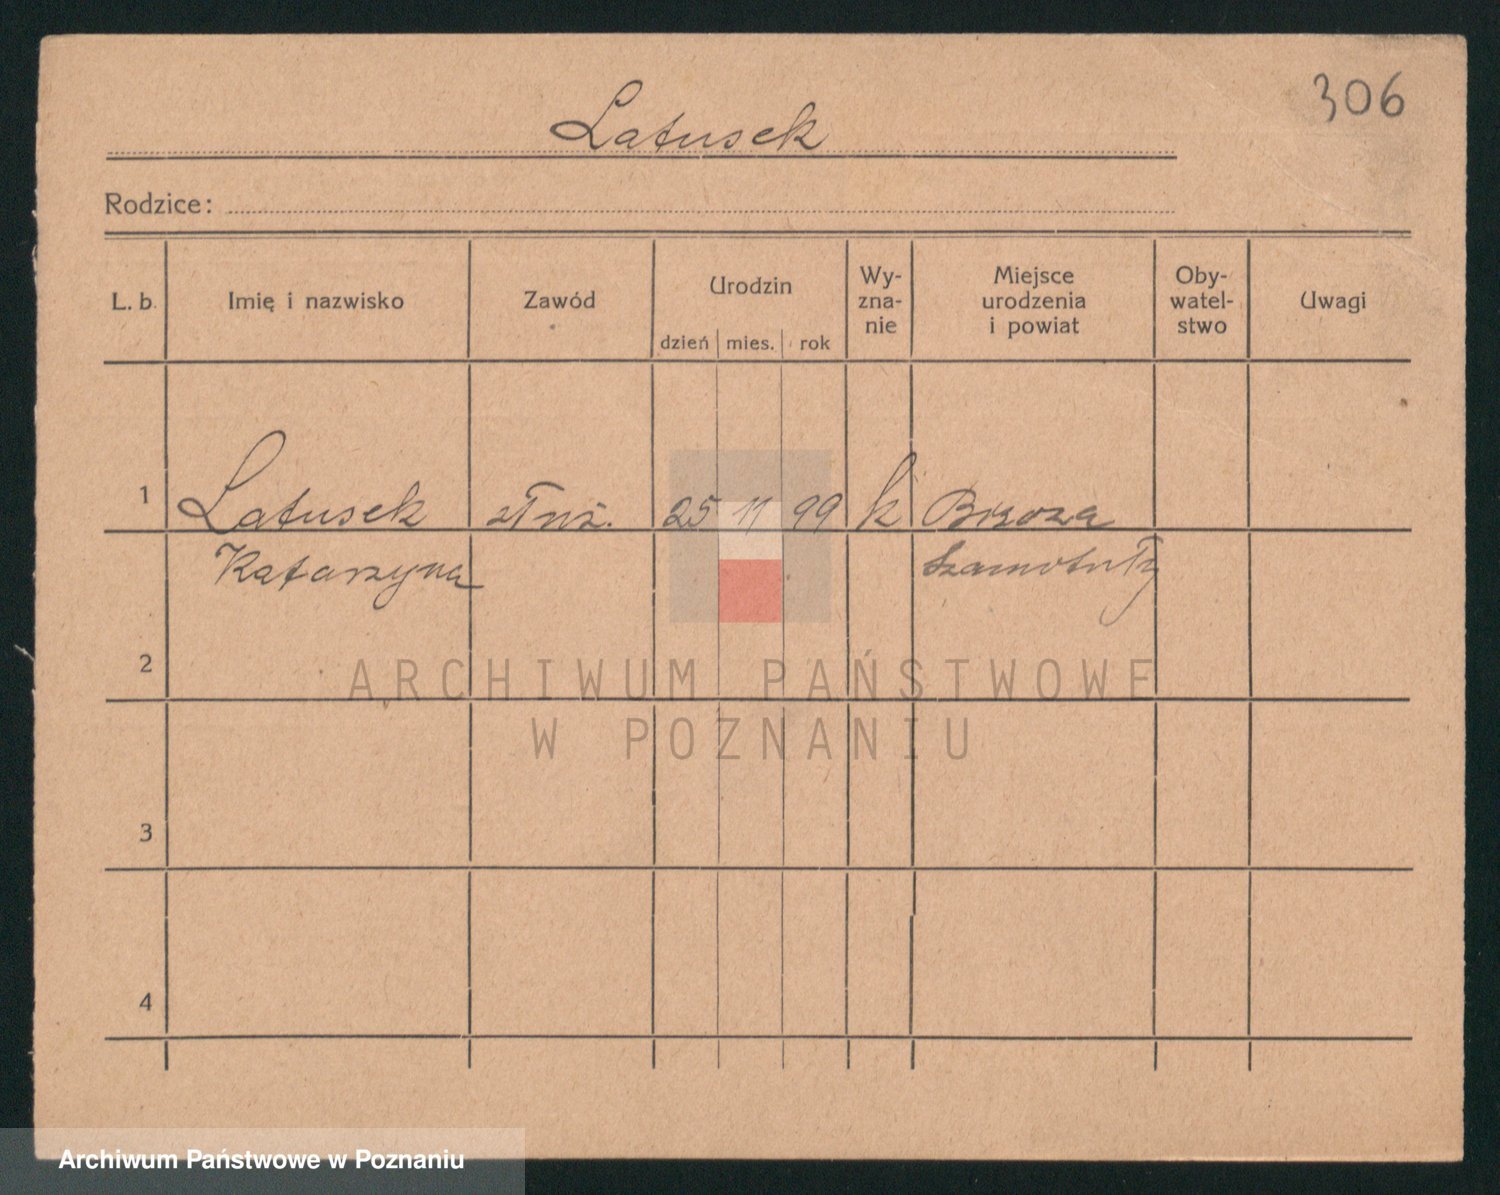 306
Latusek
Rodzice:
L. b. Imię i nazwisko Zawód Urodzin dzień mies. rok Wy-zna-nie Miejsce urodzenia i powiat Oby-watel-stwo Uwagi
1 Latusek służ. 25 11 99 k Brzoza
Katarzyna Szamotuły
2
3
4
ARCHIWUM PAŃSTWOWE
W POZNANIU
Archiwum Państwowe w Poznaniu